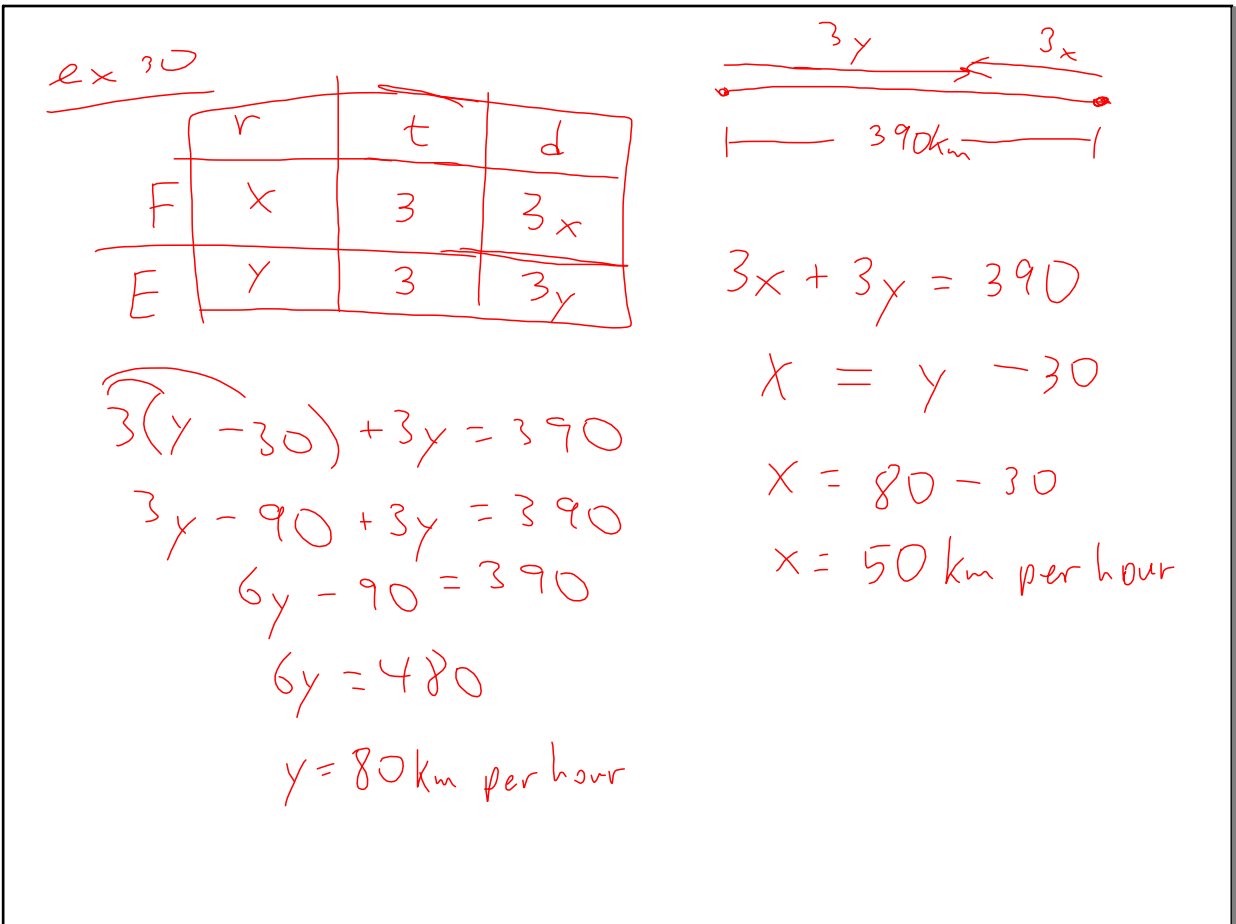 ex 30
r t d
F x 3 3x
E y 3 3y
3(y - 30) + 3y = 390
3y - 90 + 3y = 390
6y - 90 = 390
6y = 480
y = 80 km per hour
3y 3x
390km
3x + 3y = 390
x = y - 30
x = 80 - 30
x = 50 km per hour